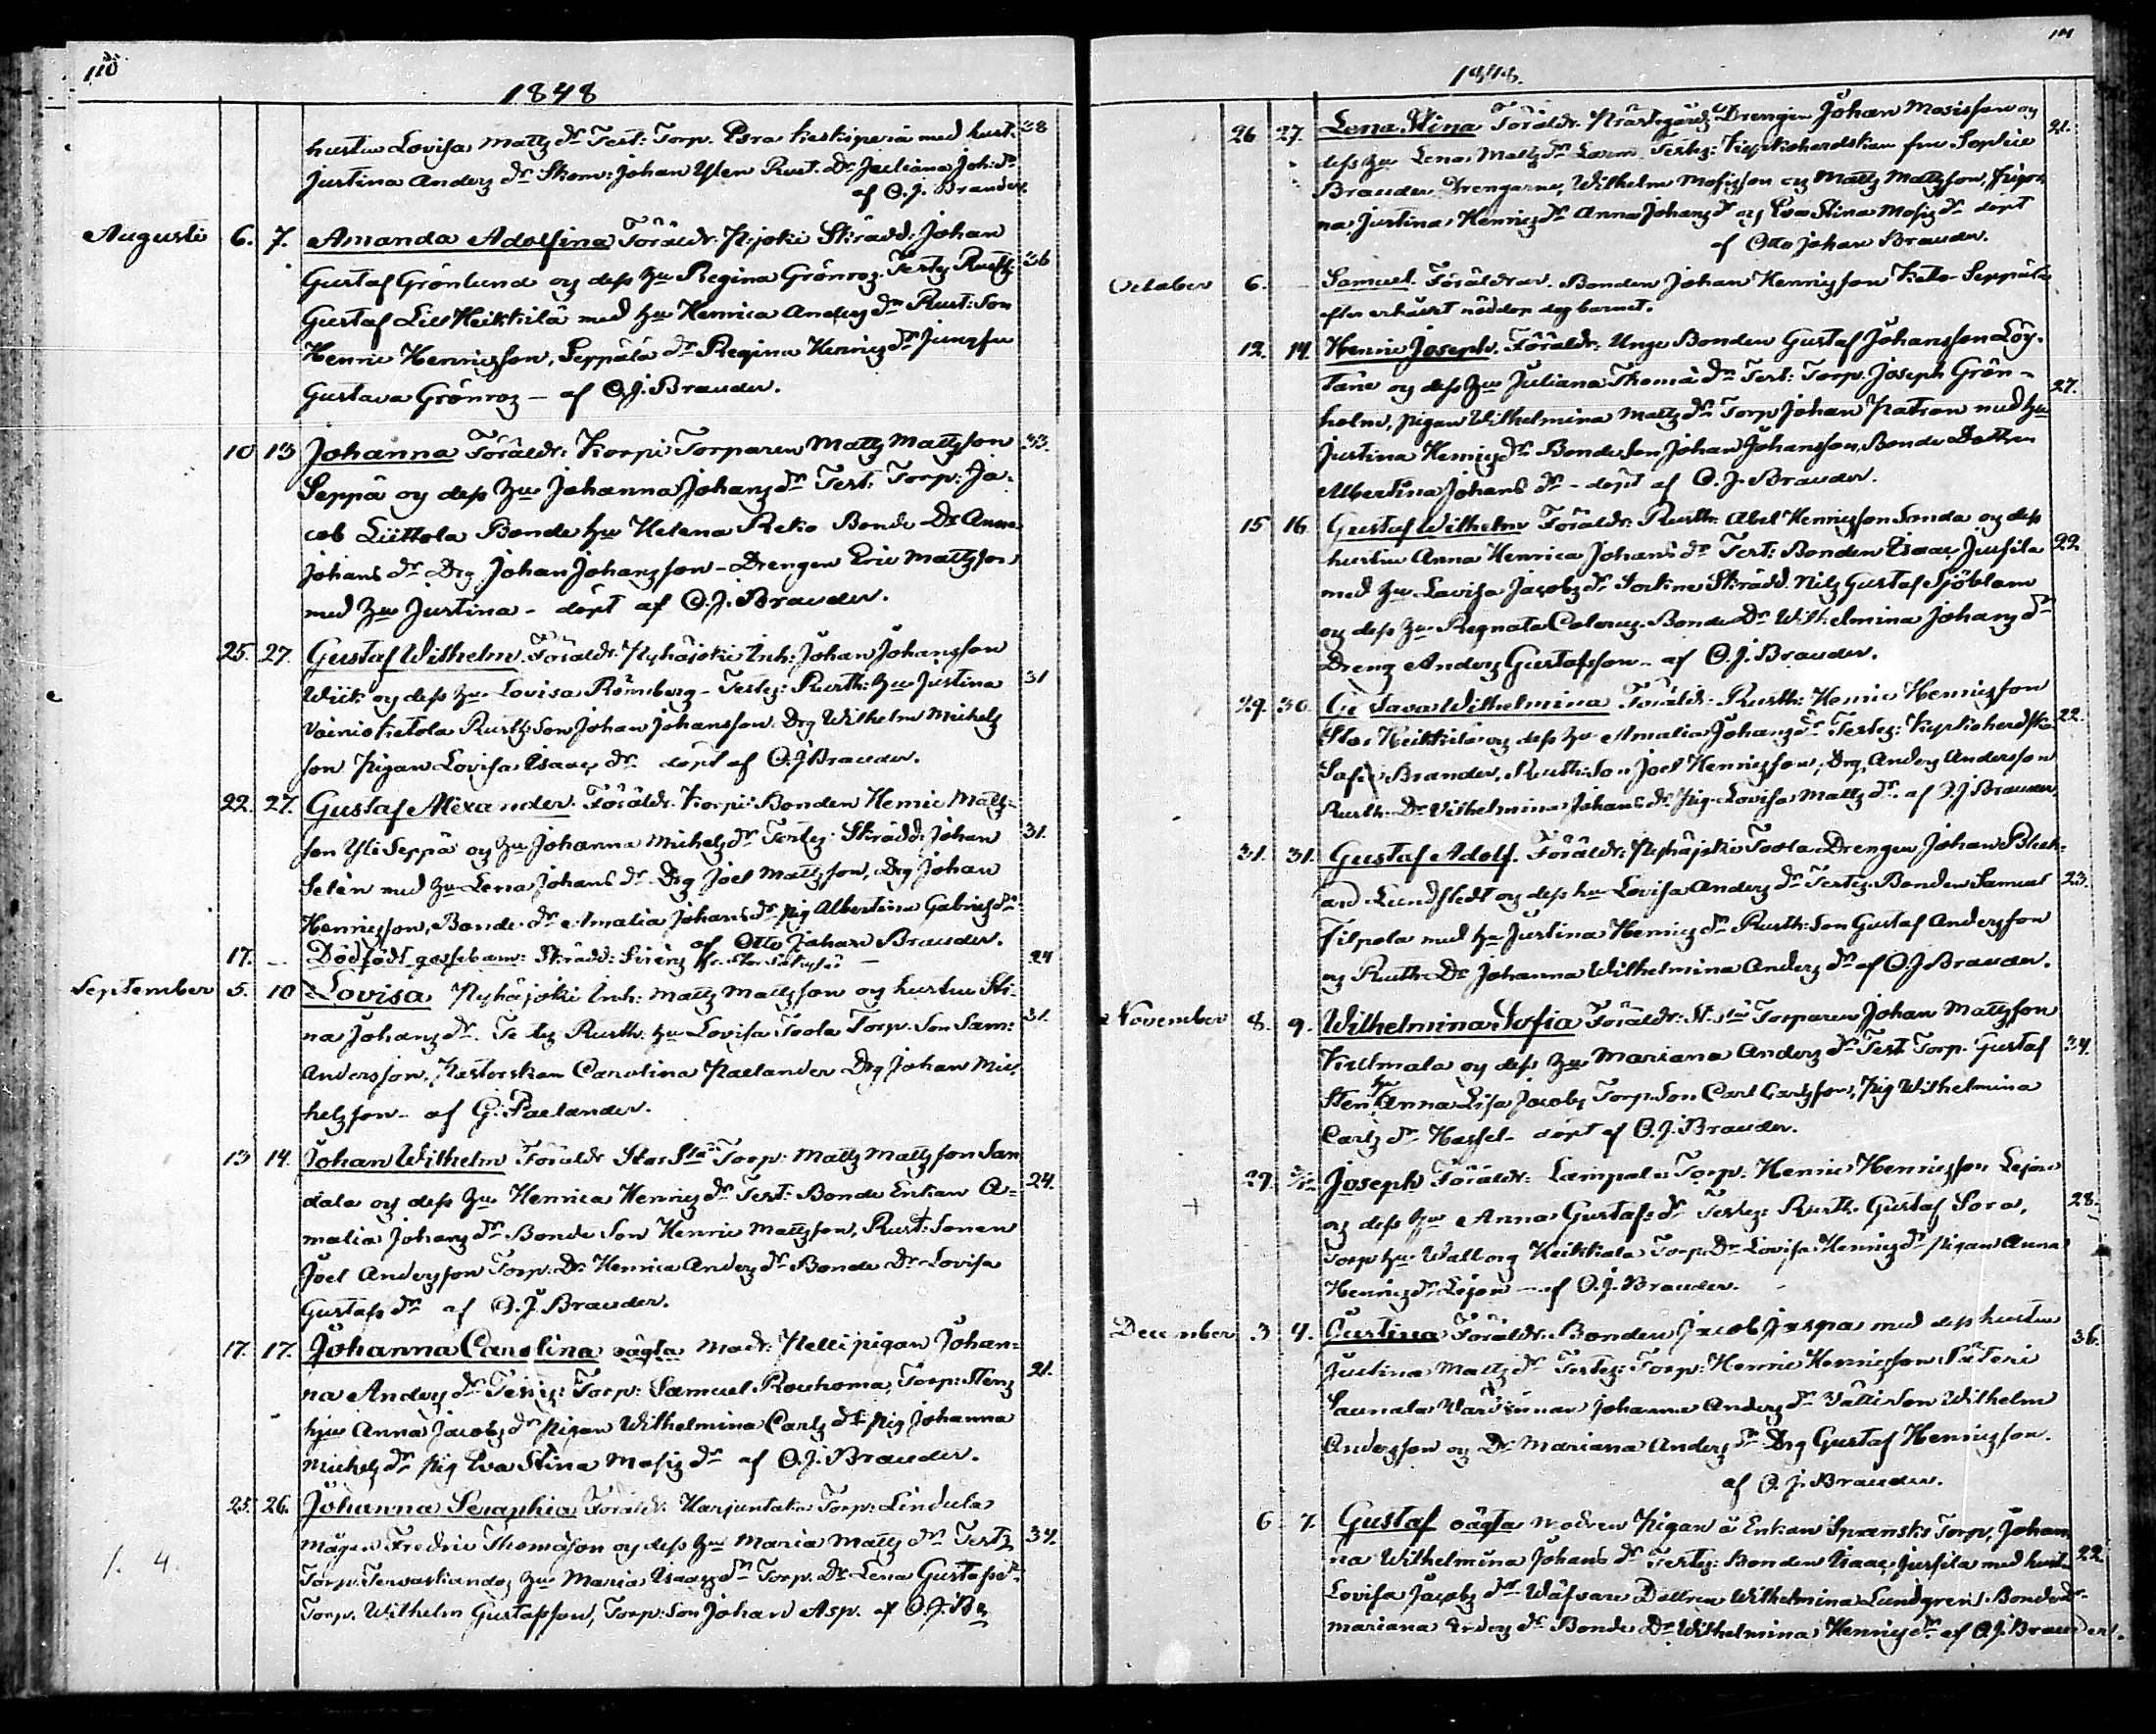 110
1848
hustru Lovisa Mattz dr Test: Torp. Esra Keskiperä med hust. 38
Justina Anderz dr Skom: Johan Ylen Rust. Dr Juliana Joh: dr
af O. J. Brander.
Augusti 6. 7. Amanda Adolfina Föräldr. Skrädd: Johan
Gustaf Grönlund og dess hu Regina Grönroz. Testz Rusth: 36
Gustaf Lill Heikkilä med hu Henrica Anderz dr Rust: Son
Henric Henricsson, Seppälä dr Regina Henricz dr Jungfru
Gustava Grönroz - af O. J. Brander.
10 13 Johanna Föräldr. Korpi Torparen Mattz Mattzson 33.
Seppä og dess hu Johanna Johanz dr Test: Torp: Ja-
cob Liittola Bonde hu Helena Reko Bonde Dr Anna
Johans dr Drg Johan Johanzson - Drengen Eric Mattzson
med hu Justina - döpt af O. J. Brander.
25. 27. Gustaf Wilhelm. Föräldr. Nyhäjoki Inh: Johan Johansson
Wiik og dess hu Lovisa Römberg - Testez: Rusth: hu Justina 31
Vainio Ketola Rustz: Son Johan Johansson. Drg Wilhelm Michelz
son Pigan Lovisa Isaacz dr döpt af O. J Brander.
22. 27. Gustaf Alexander. Föräldr. Korpi Bonden Henric Mattz-
son Yli Seppä og hu Johanna Michelz dr Testez: Skrädd: Johan 31.
Selèn med hu Lena Johans dr Drg Joel Mattzson, Drg Johan
Henricsson, Bonde dr Amalia Johans dr Pig Albertina Gabrielz dr
af Otto Johan Brander.
17. - Dödfödt gossebarn: Skrädd: Sirénz 24
September 5. 10 Lovisa Nyhäjoki Inh: Mattz Mattzson og hustru Sti-
na Johanz dr. Testez Rusth: hu Lovisa Toola Torp: Son Sam: 31.
Andersson, Pastorskan Carolina Paelander Drg Johan Mic-
helzson - af G: Paelander.
13 14. Johan Wilhelm Föräldr Stor Torp: Mattz Mattzson San
dala og dess hu Henrica Henricz dr Test: Bonde Enkan A= 24.
malia Johanz dr Bonde Son Henric Mattzson, Rust: Sonen
Joel Andersson Torp: Dr Henrica Anderz dr Bonde Dr Lovisa
Gustafs dr af O. J. Brander.
17. 17. Johanna Carolina oägta Modr: Nelli pigan Johan=
na Anderz dr Testez: Torp: Samuel Rouhoma, Torp: Stenz 21.
hju Anna Jacobz dr Pigan Wilhelmina Carlz dr Pig Johanna
Michelz dr Pig Eva Stina Mosiz dr af O. J. Brander.
25. 26. Johanna Seraphia Föräldr. Harjuntaka Torp: Lindula
mågen Fredric Thomasson og dess hu Maria Mattz dr Testz 34.
Torp: hu Maria Isaacz dr Torp. Dr Lena Gustafs dr
Torp. Wilhelm Gustafsson, Torp: Son Johan Asp. af O. J. Br
1. 4.
111
1848.
26 27. Lena Stina Föräldr. Prästegårdz Drengen Johan Mosisson og 21.
dess hu Lena Mattz dr Testez: Kyrkoherdskan fru Sophie
Brander, Drengarne, Wilhelm Mosisson og Mattz Mattzson, Pigor
na Justina Henricz dr Anna Johanz dr og Eva Stina Mosiz dr döpt
af Otto Johan Brander.
October 6. Samuel. Föräldrar. Bonden Johan Henricsson Keto-Seppälä
efter erhållet nöddop dog barnet.
12. 14. Henric Joseph. Föräldr: Unge Bonden Gustaf Johansson Löy-
täne og dess hu Juliana Thomä dr Test: Torp. Joseph Grön- 27.
holm, pigan Wilhelmina Mattz dr Torp Johan Patron med hu
Justina Henricz dr Bonde Son Johan Johansson, Bonde Dottren
Albertina Johans dr - döpt af O. J. Brander.
15 16. Gustaf Wilhelm Föräldr. Rusth: Abel Henricsson Sonda og dess
hustru Anna Henrica Johans dr Test: Bonden Isaac Jussila 22
med hu Lovisa Jacobz dr Sockne Skrädd. Nilz Gustaf Sjöblom
og dess hu Regnata Calenz. Bonde Dr Wilhelmina Johanz dr
Dreng Anderz Gustafsson - af O. J. Brander.
29. 30. Gustava Wilhelmina Föräldr: Rusth: Henric Henricsson
Stor Heikkilä og dess hu Amalia Johanz dr Testez: Kyrkoherdska 22.
Sofia Brander, Rusth: Son Joel Henricsson, Drg Anderz Andersson
Rusth: Dr Vilhelmina Johans dr Pig Lovisa Mattz dr. af O J Brander.
31. 31. Gustaf Adolf. Föräldr: Nyhäjoki Toola Drengen Johan
Lundstedt og dess hu Lovisa Anderz dr Testez. Bonden Samuel 23.
Filpola med hu Justina Henricz dr Rusth: Son Gustaf Andersson
og Rusth: Dr Johanna Wilhelmina Anderz dr af O. J Brander.
November 8. 9. Wilhelmina Sofia Föräldr: Torparen Johan Mattzson
Kullmala og dess hu Mariana Anderz dr Test Torp. Gustaf 34.
Sten hu Anna Lisa Jacobz Torp: Son Carl Carlsson, Pig Wilhelmina
Carlz dr Hassel - döpt af O. J. Brander.
29. Joseph Föräldr: Lampola Torp: Henric Henricsson Lejon
og dess hu Anna Gustafs dr Testez: Rusth. Gustaf Sora, 28.
Torp hu Walborg Heikkala Torp: Dr Lovisa Henricz dr Pigan Anna
Henricz dr Lejon - af O. J. Brander.
December 3 4. Justina Föräldr. Bonden Jacob Jaspa med dess hustru 36.
Justina Mattz dr Testez: Torp: Henric Henricsson
Saunala Värdinnan Johanna Anderz dr Son Wilhelm
Andersson og Dr Mariana Anderz dr Drg Gustaf Henricsson.
af O. J. Brander.
6 7. Gustaf oägta Modren Pigan å Enkan Torp, Johan
na Wilhelmina Johans dr Testez: Bonden Isaac Jussila med hustru 22
Lovisa Jacobz dr Wäfvare Dottren Wilhelmina Lundgren. Bonde dr
Mariana dr Bonde Dr Wilhelmina Henricz dr af O. J. Brander.